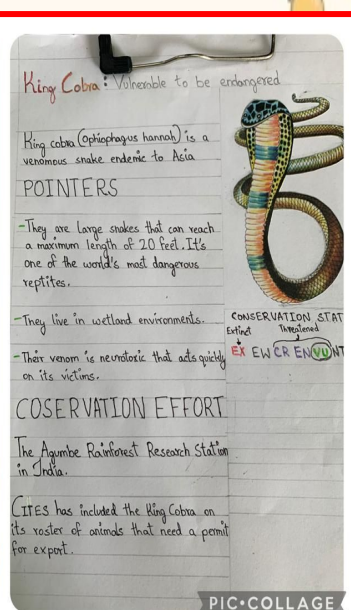 King Cobra: Vulnerable to be endangered
King cobra (Ophiophagus hannah) is a
venomous snake endemic to Asia
POINTERS
-They are large snakes that can reach
a maximum length of 20 feet. It's
one of the world's most dangerous
reptites.
-They live in wetland environments.
-Their venom is neurotoxic that acts quickly
on its victims.
COSERVATION EFFORT
The Agumbe Rainforest Research Station
in India.
CITES has included the King Cobra on
its roster of animals that need a permit
for export.
CONSERVATION STAT
Extinct Threatened
EX EW CR EN VU NT
PIC•COLLAGE